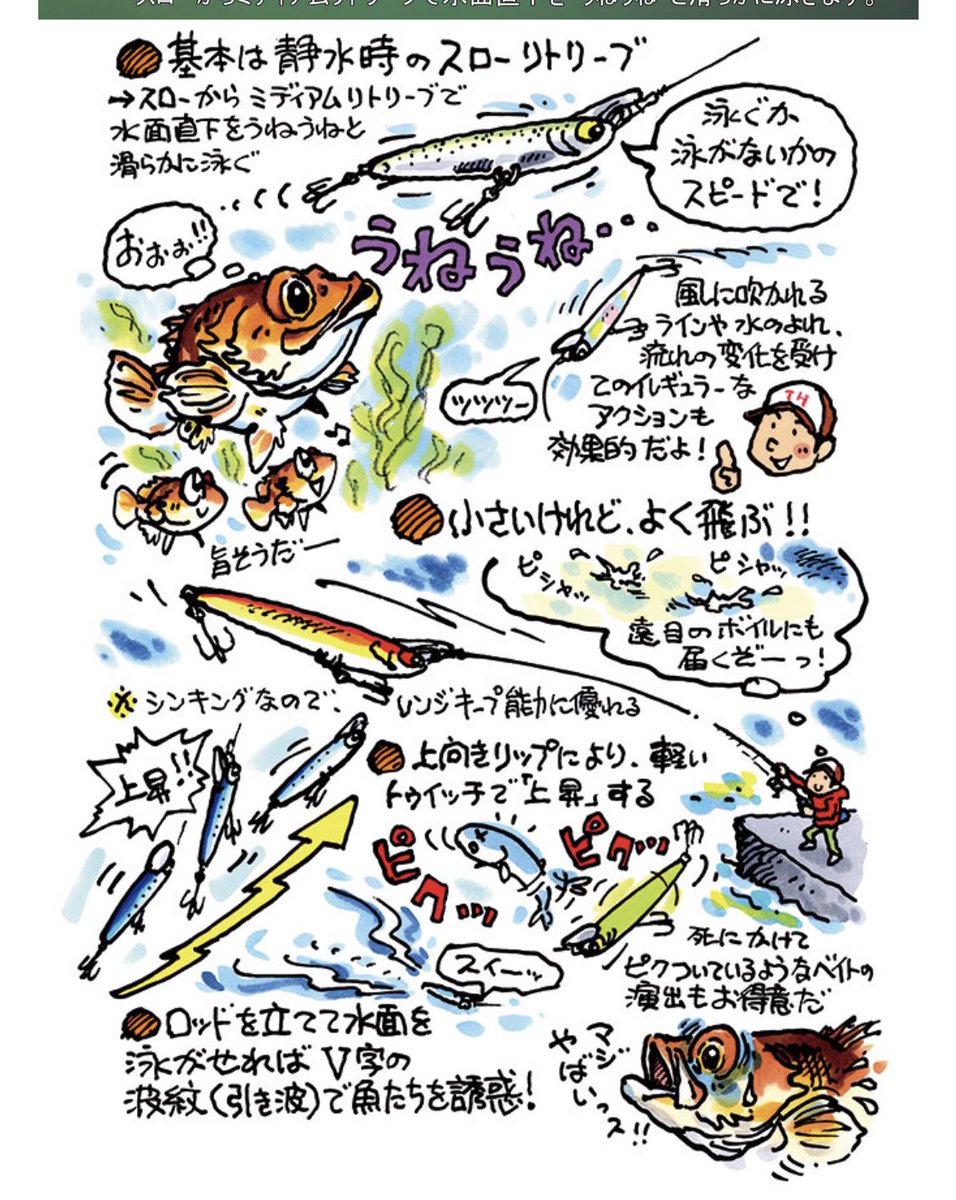 スローからミディアムリトリーブで水面直下を“うねうね”と滑らかに泳ぎます。
基本は静水時のスローリトリーブ
→スローからミディアムリトリーブで
水面直下をうねうねと
滑らかに泳ぐ
泳ぐか、
泳がないかの
スピードで!
おぉぉ!!
うねうね…
風に吹かれる
ラインや水のよれ、
流れの変化を受け
てのイレギュラーな
アクションも
効果的だよ!
ツツツー
TH
旨そうだー
小さいけれど、よく飛ぶ!!
ピシャッ
ピシャッ
遠目のボイルにも
届くぞーっ!
※シンキングなので、レンジキープ能力に優れる
上昇!!
上向きリップにより、軽い
トゥイッチで「上昇」する
ピク…
ピク…
スイーッ
死にかけて
ピクついているようなベイトの
演出もお得意だ
ロッドを立てて水面を
泳がせればV字の
波紋(引き波)で魚たちを誘惑!
マジ
やばいっス!!